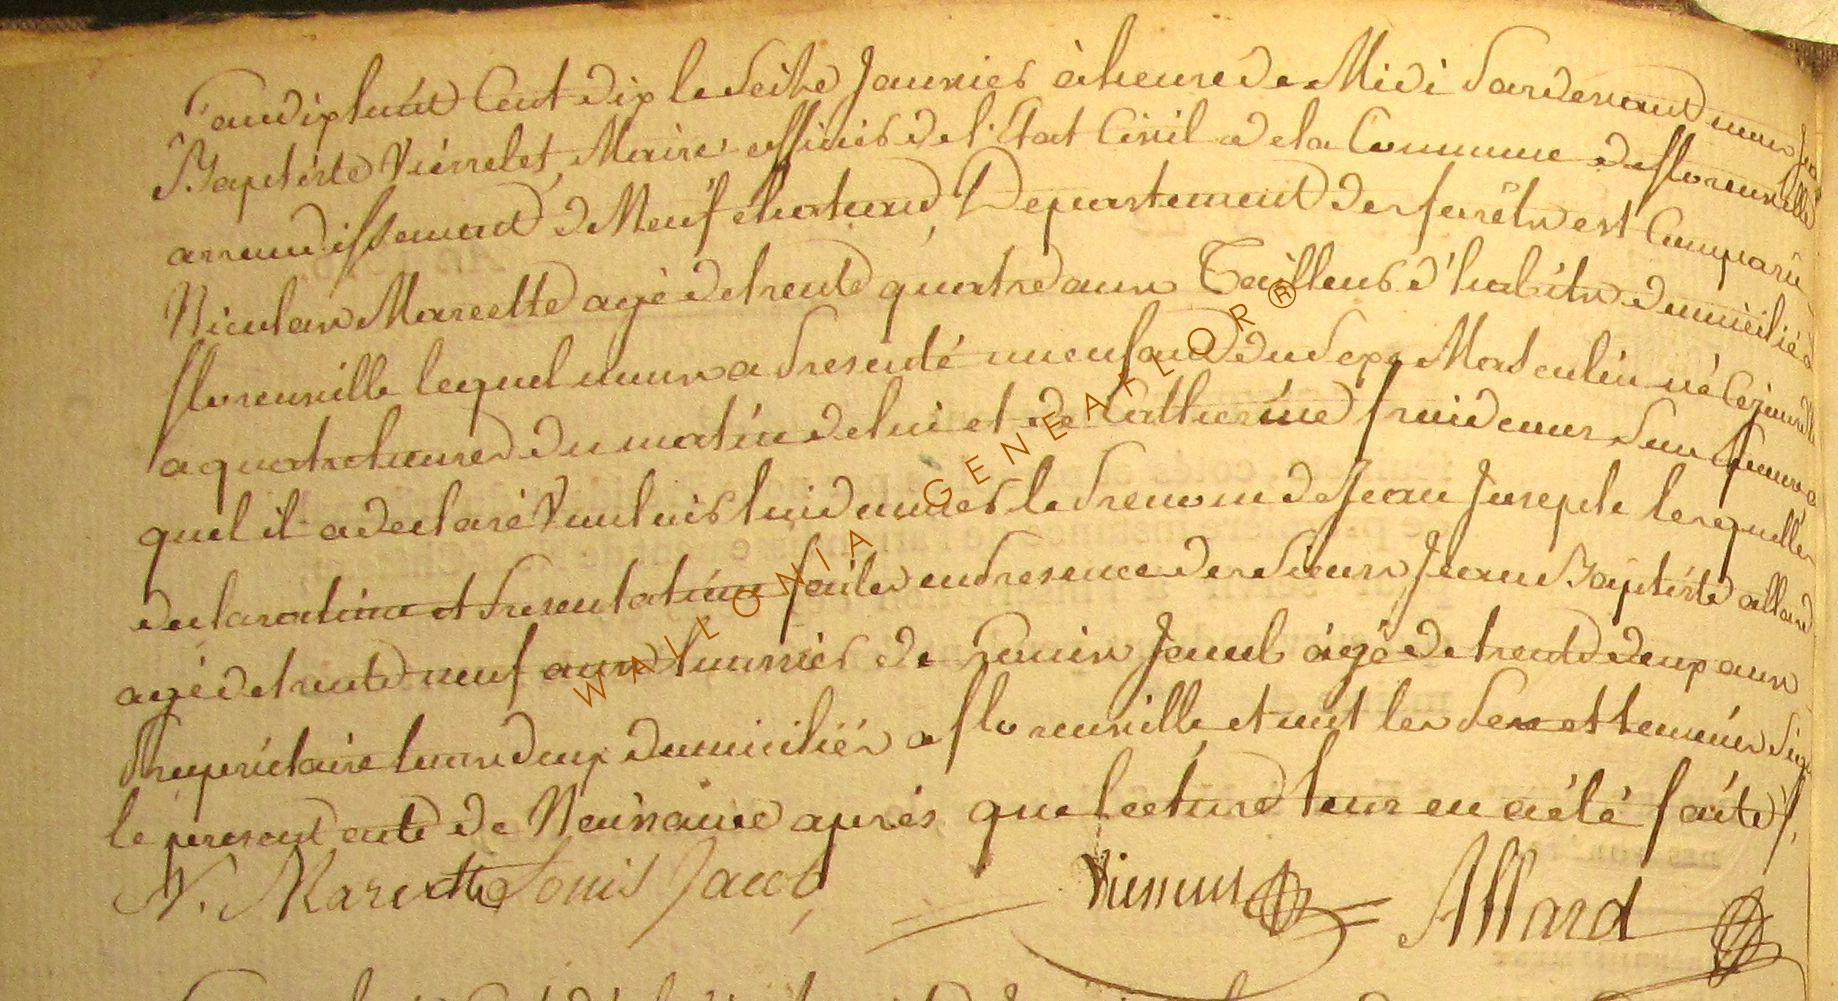 L'an dix huit Cent dix le seize Janvier à heure de Midi Pardevant nous Jean
Baptiste Viérrelet, Maire officier de l'Etat Civil de la Commune de florenville
arrondissement de Neufchateau, Departement des forêts est Comparu
Nicolas Marcette agé de trente quatre ans Tailleur d'habits domicilié à
florenville lequel nous a Presenté un enfant du Sexe Masculin né Cejourd'h
a quatre heures du matin de lui et de Catherine froidcour Son Epouse a
quel il a declaré Vouloir lui donner le Prenom de Jean Joseph lesquelles
declaration et Presentation faites en Presence des Sieurs Jean Baptiste allard
agé de trente neuf ans tournier de Louis Jacob âgé de trente deux ans
Propriétaire tous deux domiciliés a florenville et ont les Pere et temoins Signé
le present acte de Naissance après que lecture leur en a été faite /.
N. Marcette Louis Jacob
Allard
WALLONIA GENEAFLOR®